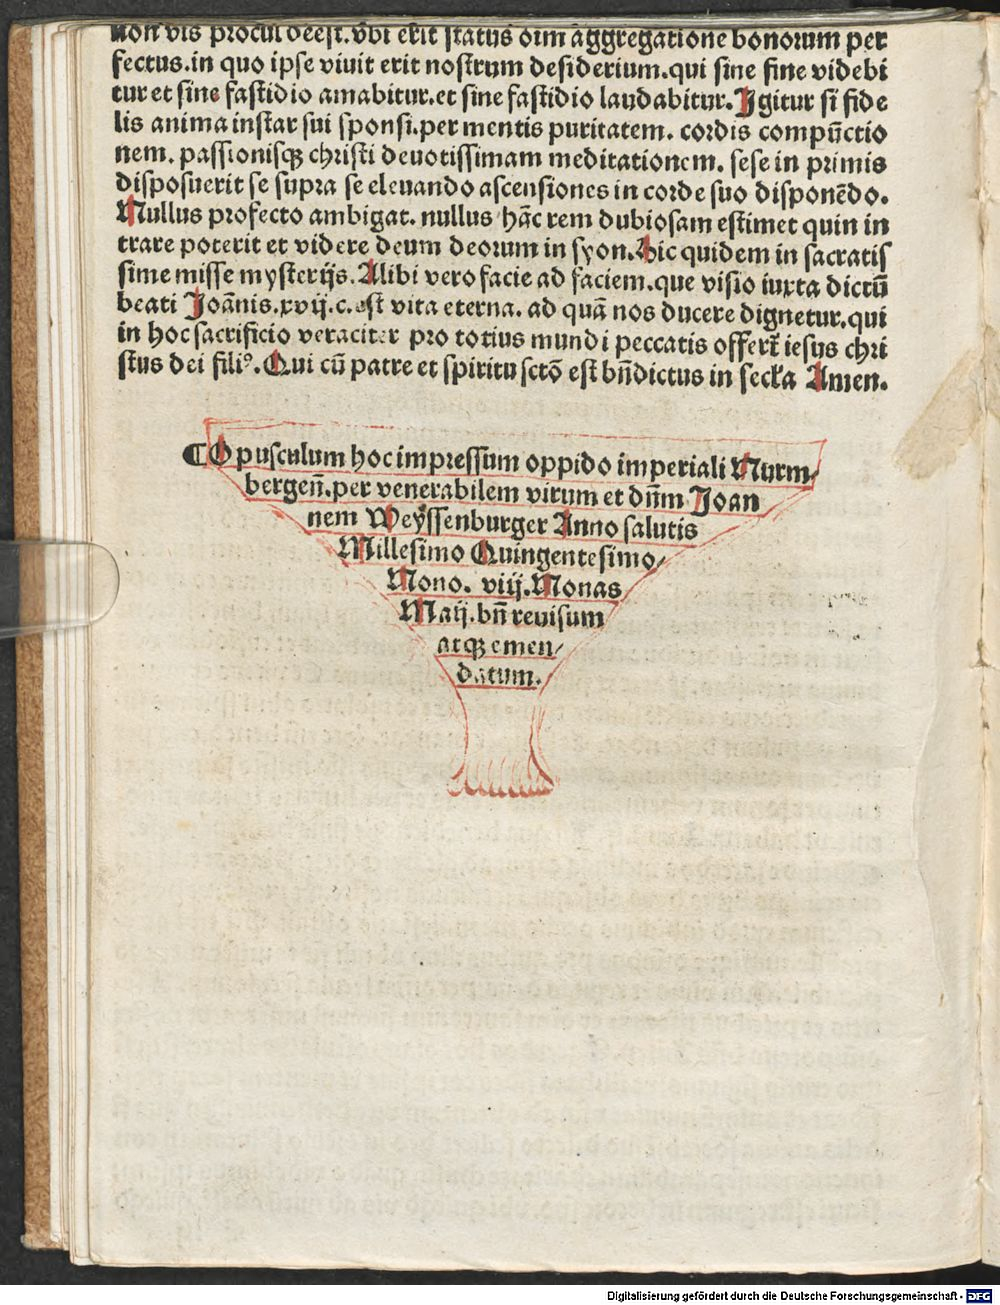 non vis procul deest. vbi erit status oīm aggregatione bonorum per
fectus. in quo ipse viuit erit nostrum desiderium. qui sine fine videbi
tur et sine fastidio amabitur. et sine fastidio laudabitur. Igitur si fide
lis anima instar sui sponsi. per mentis puritatem. cordis compūctio
nem. passionisqꝫ christi deuotissimam meditationem. sese in primis
disposuerit se supra se eleuando ascensiones in corde suo disponēdo.
Nullus profecto ambigat. nullus hāc rem dubiosam estimet quin in
trare poterit et videre deum deorum in syon. Hic quidem in sacratis
sime misse mysterijs. Alibi vero facie ad faciem. que visio iuxta dictū
beati Joānis. xvij. c. est vita eterna. ad quā nos ducere dignetur. qui
in hoc sacrificio veraciter pro totius mundi peccatis offert̄ iesus chri
stus dei filiꝰ. Qui cū patre et spiritu sctō est bn̄dictus in secl'a Amen.
¶ Opusculum hoc impressum oppido imperiali Nurm/
bergen̄. per venerabilem virum et dn̄m Joan
nem Weyssenburger Anno salutis
Millesimo Quingentesimo/
Nono. viij. Nonas
Maij. bn̄ reuisum
atqꝫ emen/
datum.
Digitalisierung gefördert durch die Deutsche Forschungsgemeinschaft - DFG